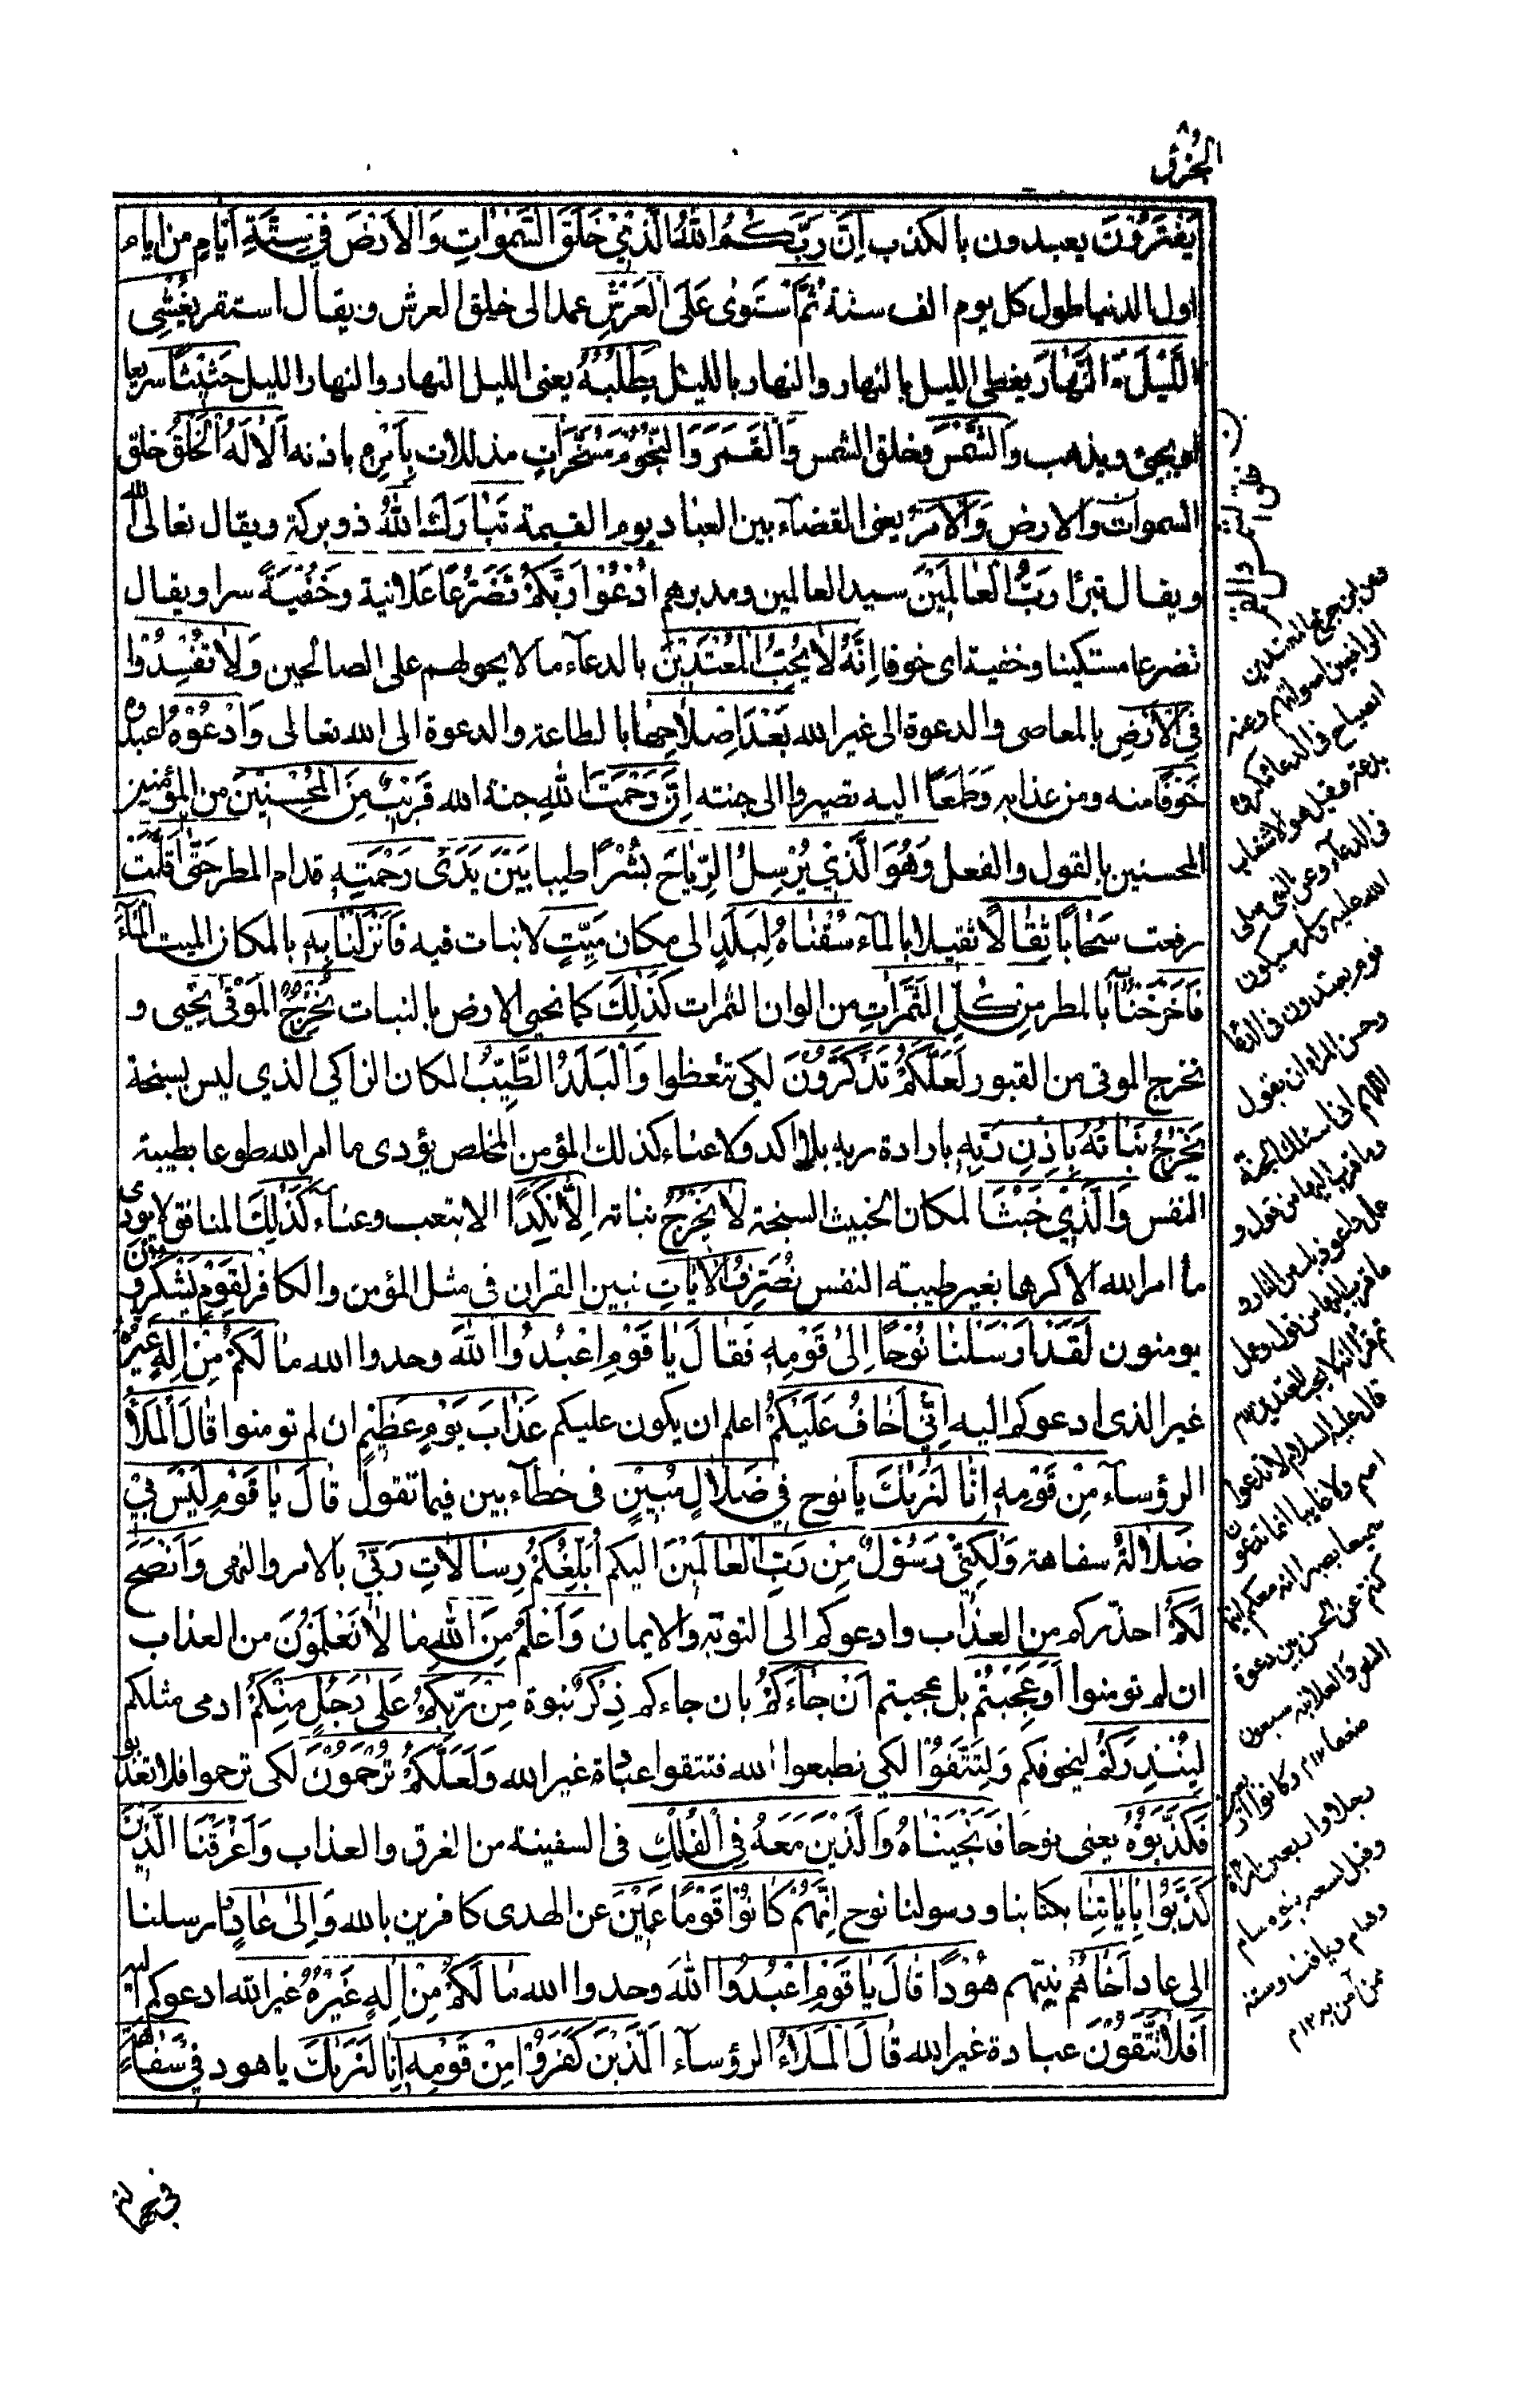 الجزء ٨
يَفْتَرُونَ يعبدون بالكذب اِنَّ رَبَّكُمُ اللّٰهُ الَّذِيْ خَلَقَ السَّمٰوَاتِ وَالْاَرْضَ فِيْ سِتَّةِ اَيَّامٍ من ايام
اول الدنيا طول كل يوم الف سنة ثُمَّ اسْتَوٰى عَلَى الْعَرْشِ عمد الى خلق العرش ويقال استقر يُغْشِي
اللَّيْلَ النَّهَارَ يغطى الليل بالنهار والنهار بالليل يَطْلُبُهُ يعنى الليل النهار والنهار الليل حَثِيْثًا سريعا
يجئ ويذهب وَالشَّمْسَ وخلق الشمس وَالْقَمَرَ وَالنُّجُوْمَ مُسَخَّرَاتٍ مذللات بِاَمْرِهٖ باذنه اَلَا لَهُ الْخَلْقُ خلق
السموات والارض وَالْاَمْرُ يعنى القضاء بين العباد يوم القيمة تَبَارَكَ اللّٰهُ ذو بركة ويقال تعالى الله
ويقال تبرأ رَبُّ الْعَالَمِيْنَ سيد العالمين ومدبرهم اُدْعُوْا رَبَّكُمْ تَضَرُّعًا علانية وَخُفْيَةً سرا ويقال
تضرعا مستكينا وخفية اى خوفا اِنَّهُ لَا يُحِبُّ الْمُعْتَدِيْنَ بالدعاء ما لا يحولهم على الصالحين وَلَا تُفْسِدُوْا
فِي الْاَرْضِ بالمعاصى والدعوة الى غير الله بَعْدَ اِصْلَاحِهَا بالطاعة والدعوة الى الله تعالى وَادْعُوْهُ اعبدوه
خَوْفًا منه ومن عذابه وَطَمَعًا اليه تصيروا الى جنته اِنَّ رَحْمَتَ اللّٰهِ جنة الله قَرِيْبٌ مِنَ الْمُحْسِنِيْنَ من المؤمنين
المحسنين بالقول والفعل وَهُوَ الَّذِيْ يُرْسِلُ الرِّيَاحَ بُشْرًا طيبا بَيْنَ يَدَىْ رَحْمَتِهٖ قدام المطر حَتّٰى اِذَا اَقَلَّتْ
رفعت سَحَابًا ثِقَالًا ثقيلا بالماء سُقْنَاهُ لِبَلَدٍ الى مكان مَيِّتٍ لا نبات فيه فَاَنْزَلْنَا بِهِ بالمكان الميت الْمَآءَ
فَاَخْرَجْنَا بِهٖ بالمطر مِنْ كُلِّ الثَّمَرَاتِ من الوان الثمرات كَذٰلِكَ كما نحيى الارض بالنبات نُخْرِجُ الْمَوْتٰى نحيى و
نخرج الموتى من القبور لَعَلَّكُمْ تَذَكَّرُوْنَ لكى تتعظوا وَالْبَلَدُ الطَّيِّبُ المكان الزاكى الذي ليس بسبخة
يَخْرُجُ نَبَاتُهُ بِاِذْنِ رَبِّهِ بارادة ربه بلا كد ولا عناء كذلك المؤمن المخلص يؤدى ما امر الله طوعا بطيبة
النفس وَالَّذِيْ خَبُثَ المكان الخبيث السبخة لَا يَخْرُجُ نباته اِلَّا نَكِدًا الا بتعب وعناء كَذٰلِكَ المنافق لا يودى
ما امر الله الا كرها بغير طيبة النفس نُصَرِّفُ الْاٰيَاتِ نبين القران فى مثل المؤمن والكافر لِقَوْمٍ يَشْكُرُوْنَ
يومنون لَقَدْ اَرْسَلْنَا نُوْحًا اِلٰى قَوْمِهِ فَقَالَ يَا قَوْمِ اعْبُدُوا اللّٰهَ وحدوا الله مَا لَكُمْ مِنْ اِلٰهٍ غَيْرُهُ
غير الذى ادعوكم اليه اِنِّيْ اَخَافُ عَلَيْكُمْ اعلم ان يكون عليكم عَذَابَ يَوْمٍ عَظِيْمٍ ان لم تومنوا قَالَ الْمَلَأُ
الرؤساء مِنْ قَوْمِهٖ اِنَّا لَنَرٰىكَ يا نوح فِيْ ضَلَالٍ مُبِيْنٍ فى خطاء بين فيما تقول قَالَ يَا قَوْمِ لَيْسَ بِيْ
ضَلَالَةٌ سفاهة وَلٰكِنِّيْ رَسُوْلٌ مِنْ رَبِّ الْعَالَمِيْنَ اليكم اُبَلِّغُكُمْ رِسَالَاتِ رَبِّيْ بالامر والنهى وَاَنْصَحُ
لَكُمْ احذركم من العذاب وادعوكم الى التوبة والايمان وَاَعْلَمُ مِنَ اللّٰهِ مَا لَا تَعْلَمُوْنَ من العذاب
ان لم تومنوا اَوَعَجِبْتُمْ بل عجبتم اَنْ جَآءَكُمْ بان جاءكم ذِكْرٌ نبوة مِنْ رَبِّكُمْ عَلٰى رَجُلٍ مِنْكُمْ ادمى مثلكم
لِيُنْذِرَكُمْ ليخوفكم وَلِتَتَّقُوْا لكى تطيعوا الله فتتقوا عبادة غير الله وَلَعَلَّكُمْ تُرْحَمُوْنَ لكى ترحموا فلا تعذبوا
فَكَذَّبُوْهُ يعنى نوحا فَاَنْجَيْنَاهُ وَالَّذِيْنَ مَعَهُ فِي الْفُلْكِ فى السفينة من الغرق والعذاب وَاَغْرَقْنَا الَّذِيْنَ
كَذَّبُوْا بِاٰيَاتِنَا بكتابنا ورسولنا نوح اِنَّهُمْ كَانُوْا قَوْمًا عَمِيْنَ عن الهدى كافرين بالله وَاِلٰى عَادٍ ارسلنا
الى عاد اَخَاهُمْ نبيهم هُوْدًا قَالَ يَا قَوْمِ اعْبُدُوا اللّٰهَ وحدوا الله مَا لَكُمْ مِنْ اِلٰهٍ غَيْرُهُ غير الله ادعوكم اليه
اَفَلَا تَتَّقُوْنَ عبادة غير الله قَالَ الْمَلَاُ الرؤساء الَّذِيْنَ كَفَرُوْا مِنْ قَوْمِهِ اِنَّا لَنَرٰىكَ يا هود فِيْ سَفَاهَةٍ
الصياح فى الدعاء مكروه
بدعة وقيل هو الاسهاب
فى الدعاء وعن النبى صلى
الله عليه وسلم سيكون
قوم يعتدون فى الدعا
وحسب المرء ان يقول
اللهم انى اسئلك الجنة
وما قرب اليها من قول و
عمل واعوذ بك من النار و
ما قرب اليها من قول وعمل
ثم قرأ انه لا يحب المعتدين
قال عليه السلام لا تدعون
اصم ولا غايبا انما تدعون
سميعا بصيرا انه معكم اينما
كنتم عن الحسن بين دعوة
السر والعلانية سبعون
ضعفا ١٢م وكانوا
رجلا واربعين امرأة
وقيل تسعة بنوه سام
وحام ويافث وستة
ممن آمن به ١٢م